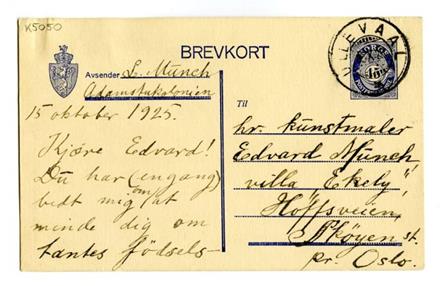 K5050
BREVKORT
Avsender L. Munch
Adamstukolonien
15 oktober 1925.
Kjære Edvard!
Du har (engang)
bedt mig om at
minde dig om
tantes fødsels-
ULLEVAAL
NORGE
15
Til
hr. kunstmaler
Edvard Munch
villa "Ekely",
Hoffsveien,
Skøyen st.
pr. Oslo.